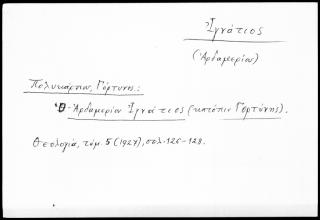 Ἰγνάτιος
(Ἀρδαμερίου)
Πολυκάρπου, Γόρτυνης:
Ὁ Ἀρδαμερίου Ἰγνάτιος (κατόπιν Γορτύνης).
Θεολογία, τόμ. 5 (1927), σελ. 126-128.